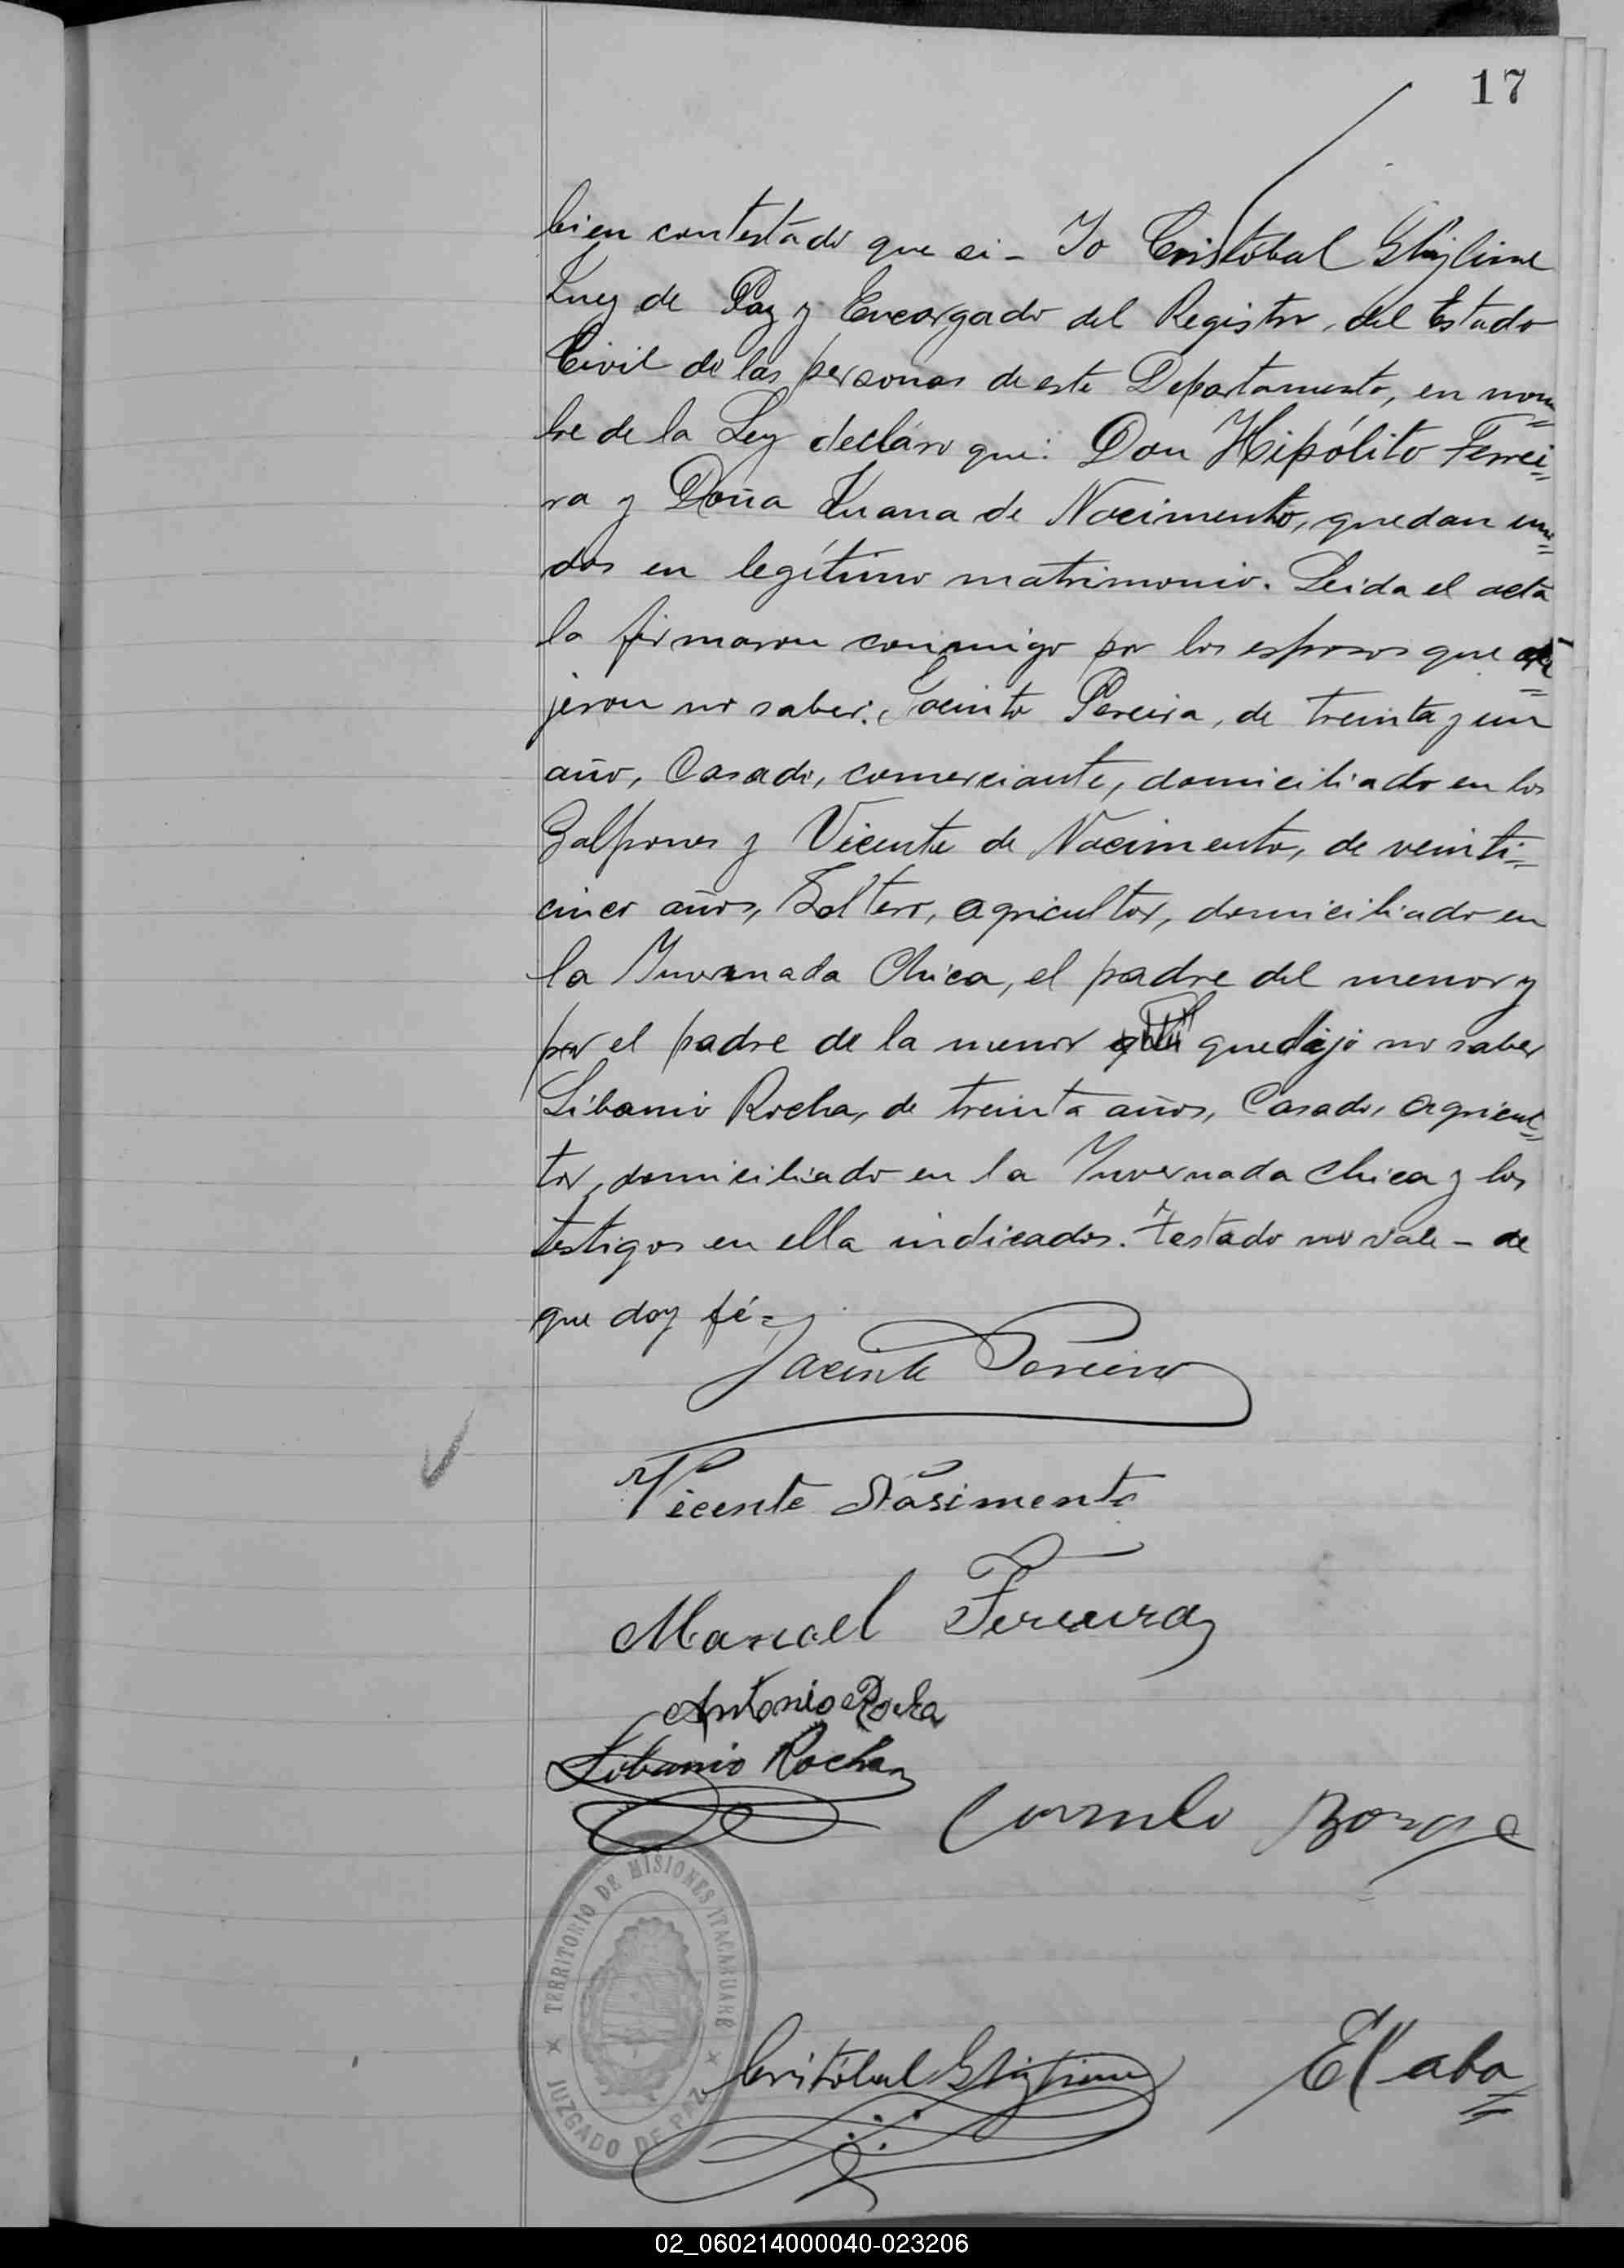 17
bien contestado que si - Yo Cristobal Ghiglione
Juez de Paz y Encargado del Registro, del Estado
Civil de las personas de este Departamento, en nom=
bre de la Ley declaro que: Don Hipólito Ferrei=
ra y Doña Juana de Nacimento, quedan uni=
dos en legítimo matrimonio. Leida el acta
la firmaron conmigo por los esposos que di=
jeron no saber, Jacinto Pereira, de treinta y un
año, Casado, comerciante, domiciliado en los
Galpones y Vicente de Nacimento, de veinti=
cinco años, Soltero, agricultor, domiciliado en
la Invernada Chica, el padre del menor y
por el padre de la menor que dijo no saber
Libanio Rocha, de treinta años, Casado, agricul=
tor, domiciliado en la Invernada Chica y los
testigos en ella indicados. Testado no vale - de
que doy fé =
Jacinto Pereira
Vicente Nasimento
Manoel Ferreira
Antonio Rocha
Libanio Rocha
Borge
TERRITORIO DE MISIONES ITACARUARE
JUZGADO DE PAZ
Cristóbal Ghiglione
02_060214000040-023206